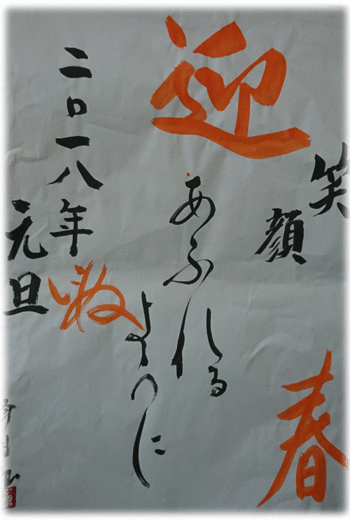 迎
春
笑
顔
あふれる
ように
二〇一八年
元旦